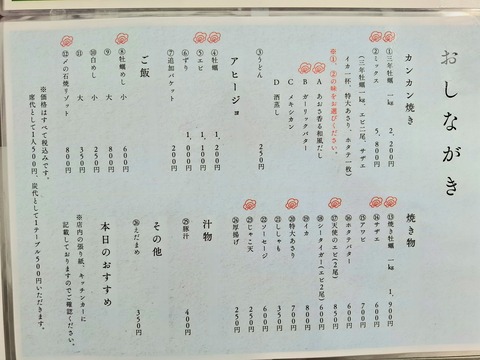 おしながき
カンカン焼き
①三年牡蠣 一㎏ 2,200円
②ミックス 5,800円
(三年牡蠣一㎏、エビ二尾、サザエ
イカ一杯、特大あさり、ホタテ一枚)
※①、②の味をお選びください。
A あおさ香る和風だし
B ガーリックバター
C メキシカン
D 酒蒸し
③うどん 250円
アヒージョ
④牡蠣 1,200円
⑤エビ 1,100円
⑥ずり 1,000円
⑦追加バケット 200円
ご飯
⑧牡蠣めし 小 600円
⑨ 大 800円
⑩白めし 小 250円
⑪ 大 350円
⑫〆の石焼リゾット 800円
※価格はすべて税込みです。
席代として1人500円、炭代として1テーブル500円いただきます。
焼き物
⑬焼き牡蠣 一㎏ 1,900円
⑭サザエ 600円
⑮アワビ 700円
⑯ホタテバター 600円
⑰天使のエビ(2尾) 850円
⑱シータイガー(エビ2尾) 600円
⑲イカ 800円
⑳特大あさり 700円
㉑ししゃも 350円
㉒ソーセージ 600円
㉓じゃこ天 250円
㉔厚揚げ 250円
汁物
㉕豚汁 400円
その他
㉖えだまめ 350円
本日のおすすめ
※店内の張り紙、キッチンカーに
記載しておりますのでご確認ください。